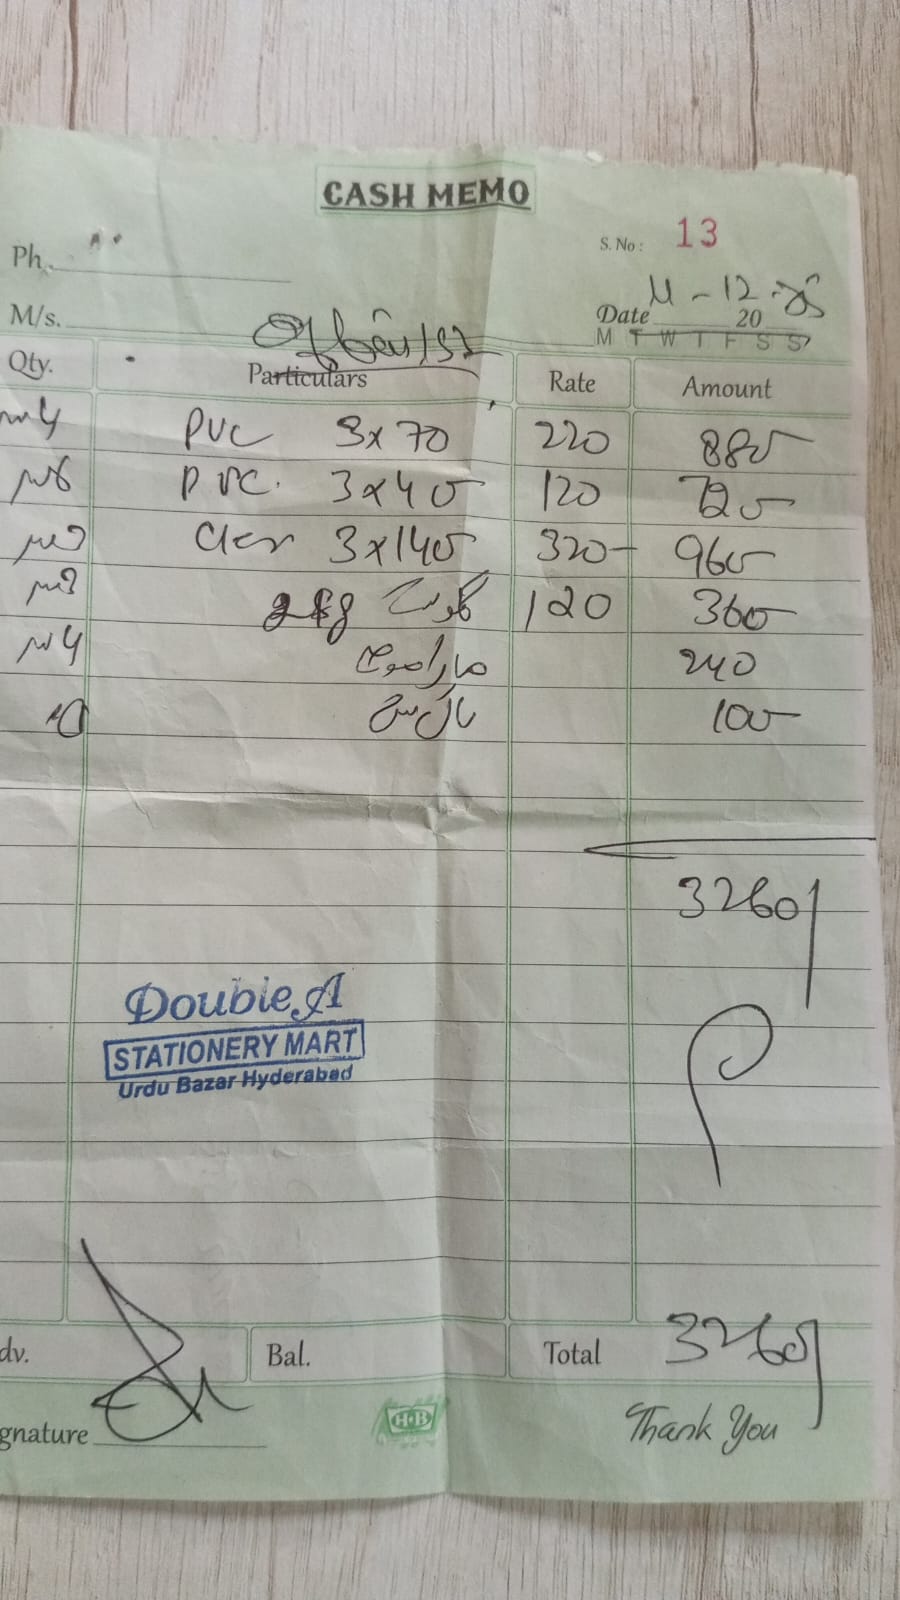 CASH MEMO
Ph.
S. No: 13
M/s.
Date 11-12-20 25
M T W T F S S
Qty. Particulars Rate Amount
4 PVC 3x70 220 880
6 PVC. 3x40 120 720
3 3x140 320 960
3 120 360
4 240
10 100
3260/
Double A
STATIONERY MART
Urdu Bazar Hyderabad
dv. Bal. Total 3260/
gnature
H·B
Thank You